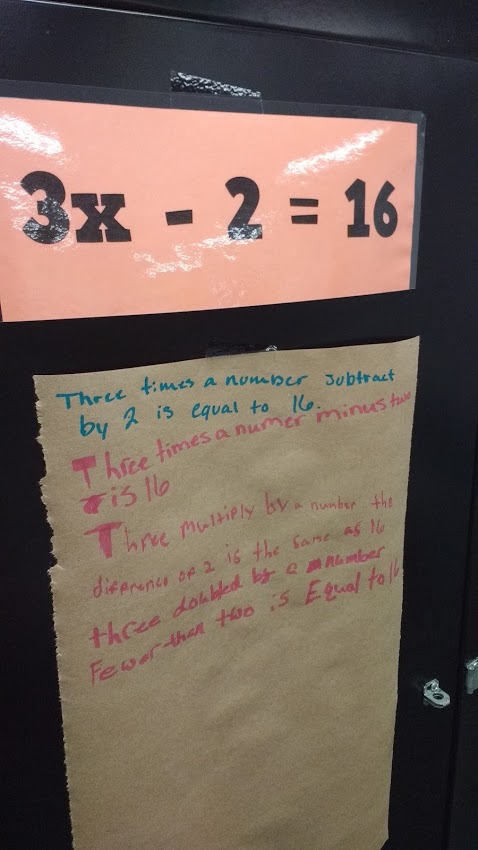 3x - 2 = 16
Three times a number subtract
by 2 is equal to 16.
Three times a numer minus two
is 16
Three multiply by a number the
difference of 2 is the same as 16
three doubled by a number
Fewer than two is Equal to 16